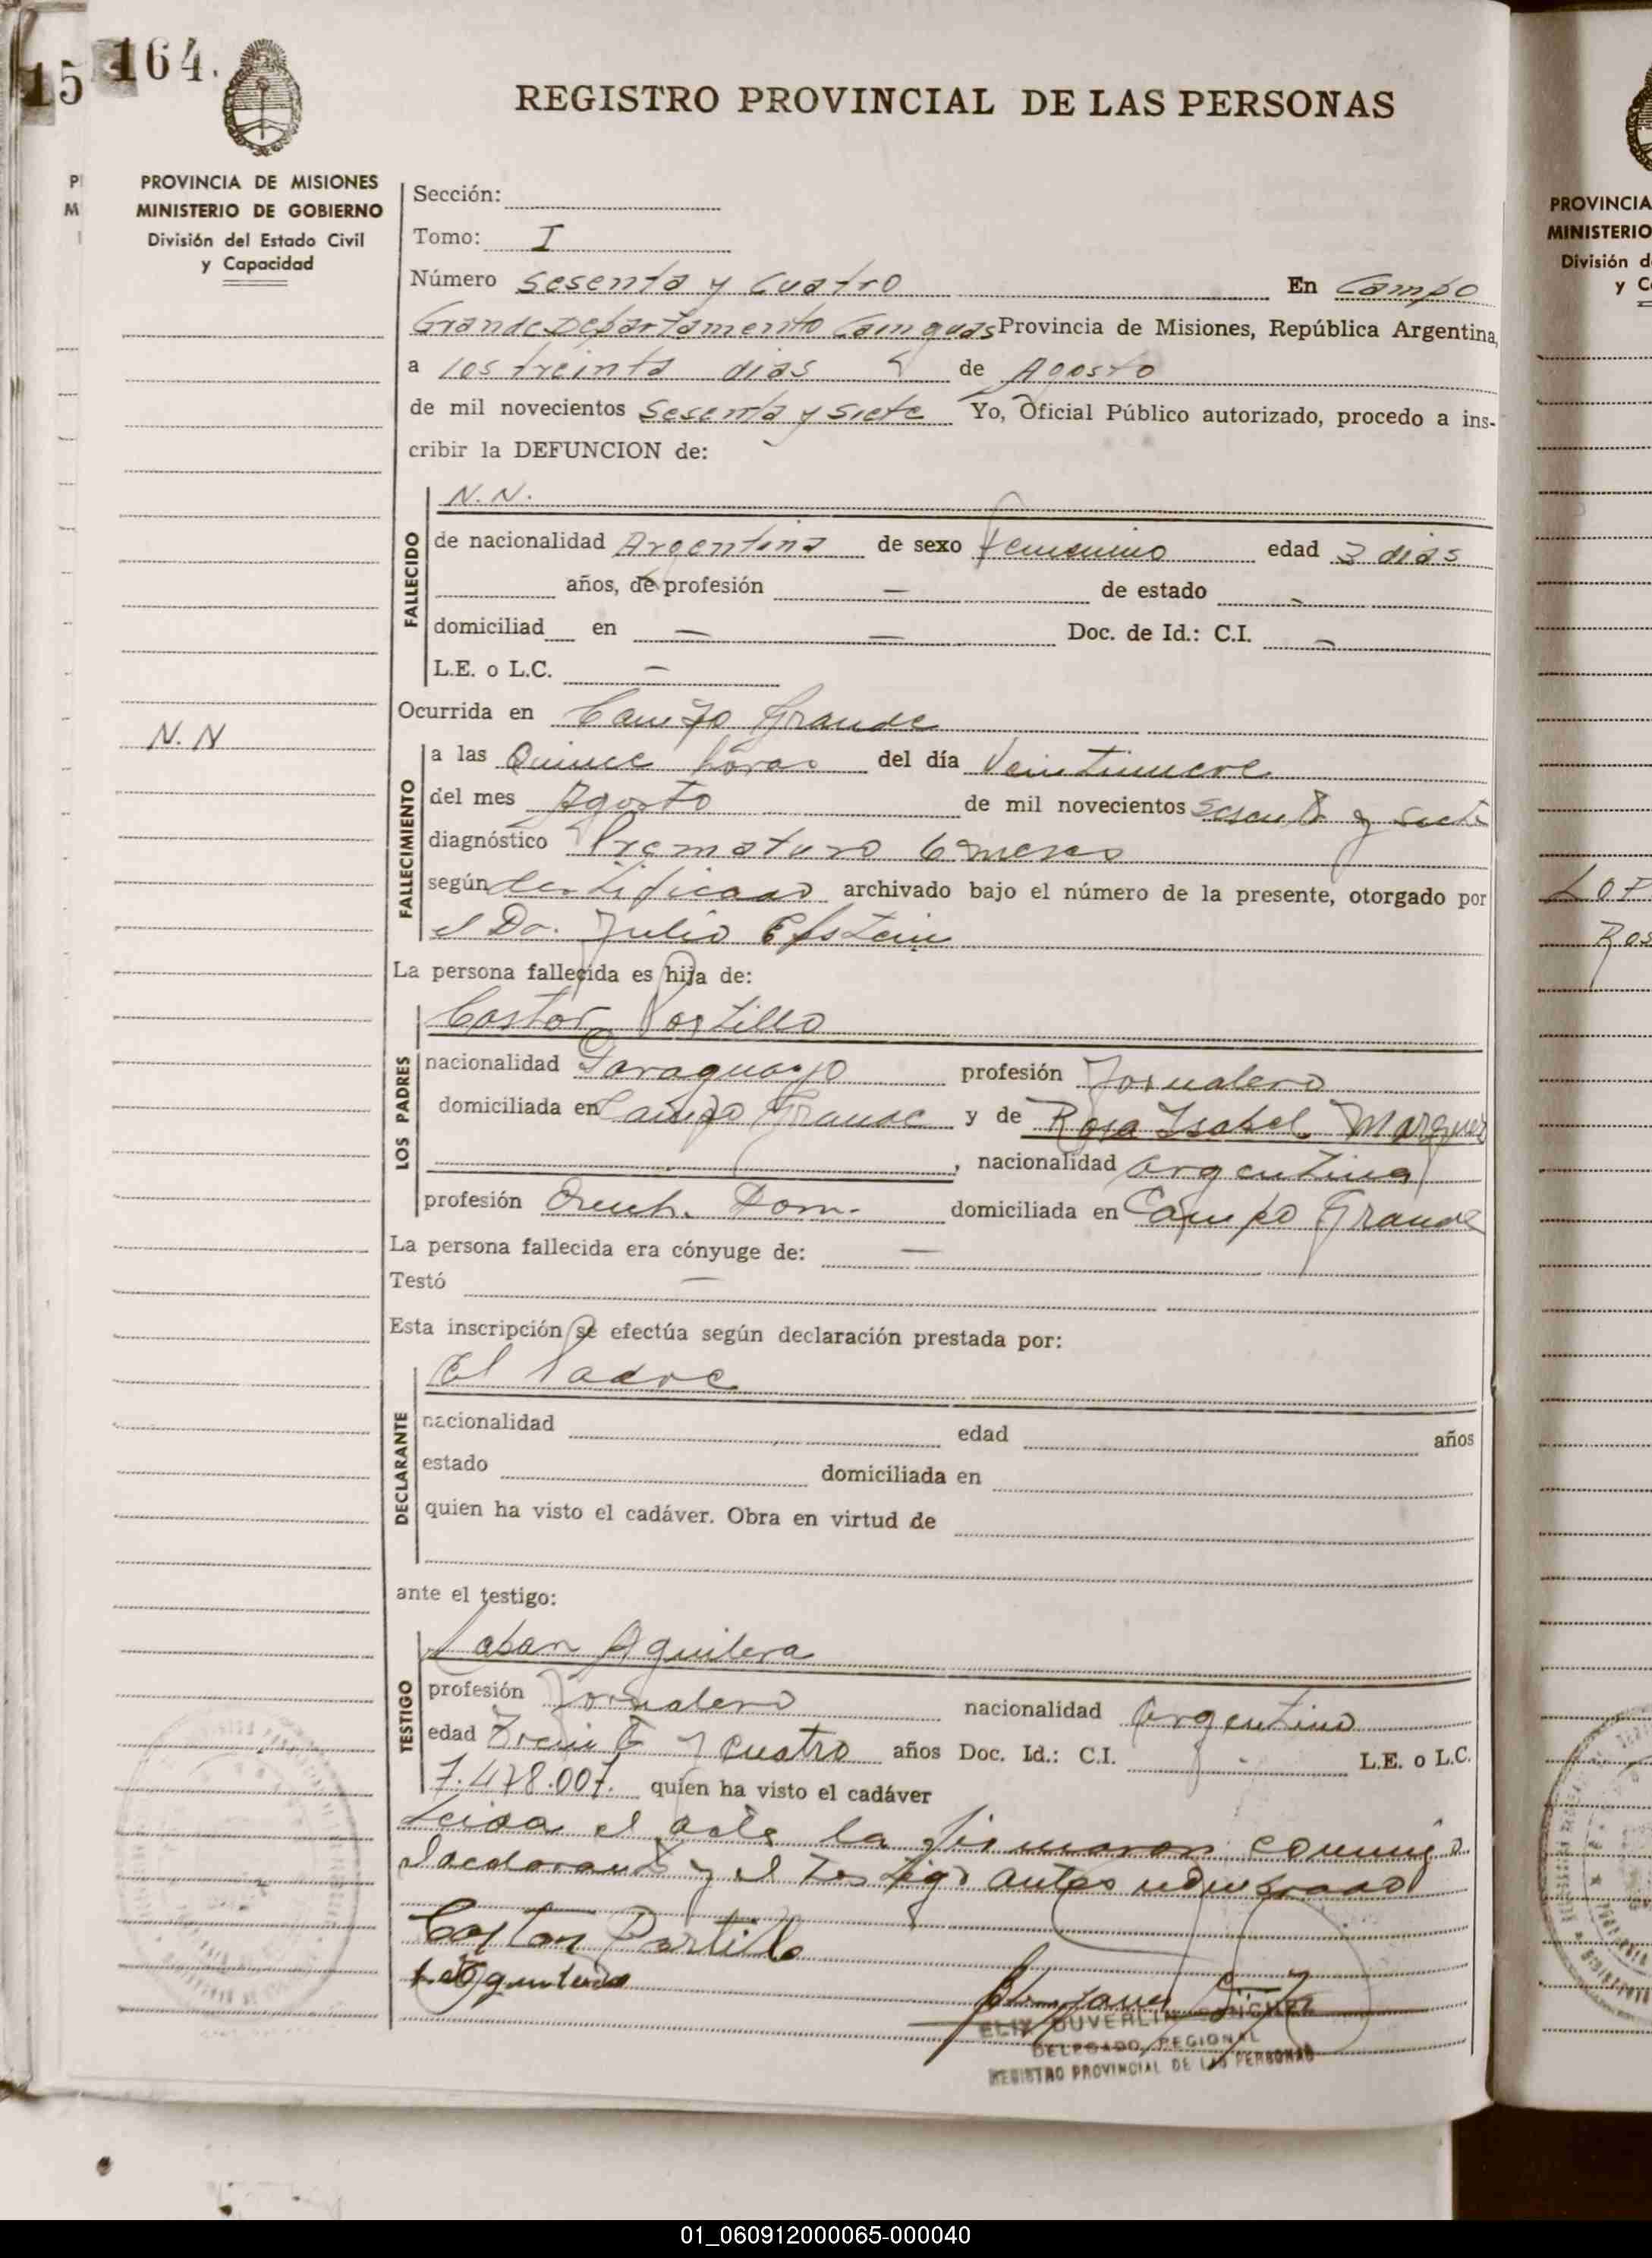 15 164.
REGISTRO PROVINCIAL DE LAS PERSONAS
PROVINCIA DE MISIONES
MINISTERIO DE GOBIERNO
División del Estado Civil
y Capacidad
N. N
Sección:
Tomo: I
Número sesenta y cuatro En Campo
Grande Departamento Cainguas Provincia de Misiones, República Argentina,
a los treinta dias de Agosto
de mil novecientos sesenta y siete Yo, Oficial Público autorizado, procedo a ins-
cribir la DEFUNCION de:
FALLECIDO
N. N.
de nacionalidad Argentina de sexo femenino edad 3 dias
años, de profesión — de estado -
domiciliad en — — Doc. de Id.: C.I. -
L.E. o L.C. —
Ocurrida en Campo Grande
FALLECIMIENTO
a las Quince horas del día Veintinueve
del mes Agosto de mil novecientos sesenta y siete
diagnóstico Prematuro 6 meses
según certificado archivado bajo el número de la presente, otorgado por
el Dr. Julio Epstein
La persona fallecida es hija de:
LOS PADRES
Castor Portillo
nacionalidad Paraguayo profesión Jornalero
domiciliada en Campo Grande y de Rosa Isabel Marquez
, nacionalidad argentina
profesión Dom. domiciliada en Campo Grande
La persona fallecida era cónyuge de: —
Testó —
Esta inscripción se efectúa según declaración prestada por:
DECLARANTE
El Padre
nacionalidad edad años
estado domiciliada en
quien ha visto el cadáver. Obra en virtud de
ante el testigo:
TESTIGO
Laban Aguilera
profesión Jornalero nacionalidad argentino
edad Treinta y cuatro años Doc. Id.: C.I. - L.E. o L.C.
7.478.007. quien ha visto el cadáver
Leida el acta la firmaron conmigo
el declarante y el testigo antes nombrado
Castor Portillo
L Aguilera
DELEGADO REGIONAL
REGISTRO PROVINCIAL DE LAS PERSONAS
PROVINCIA
MINISTERIO
División d
y C
01_060912000065-000040